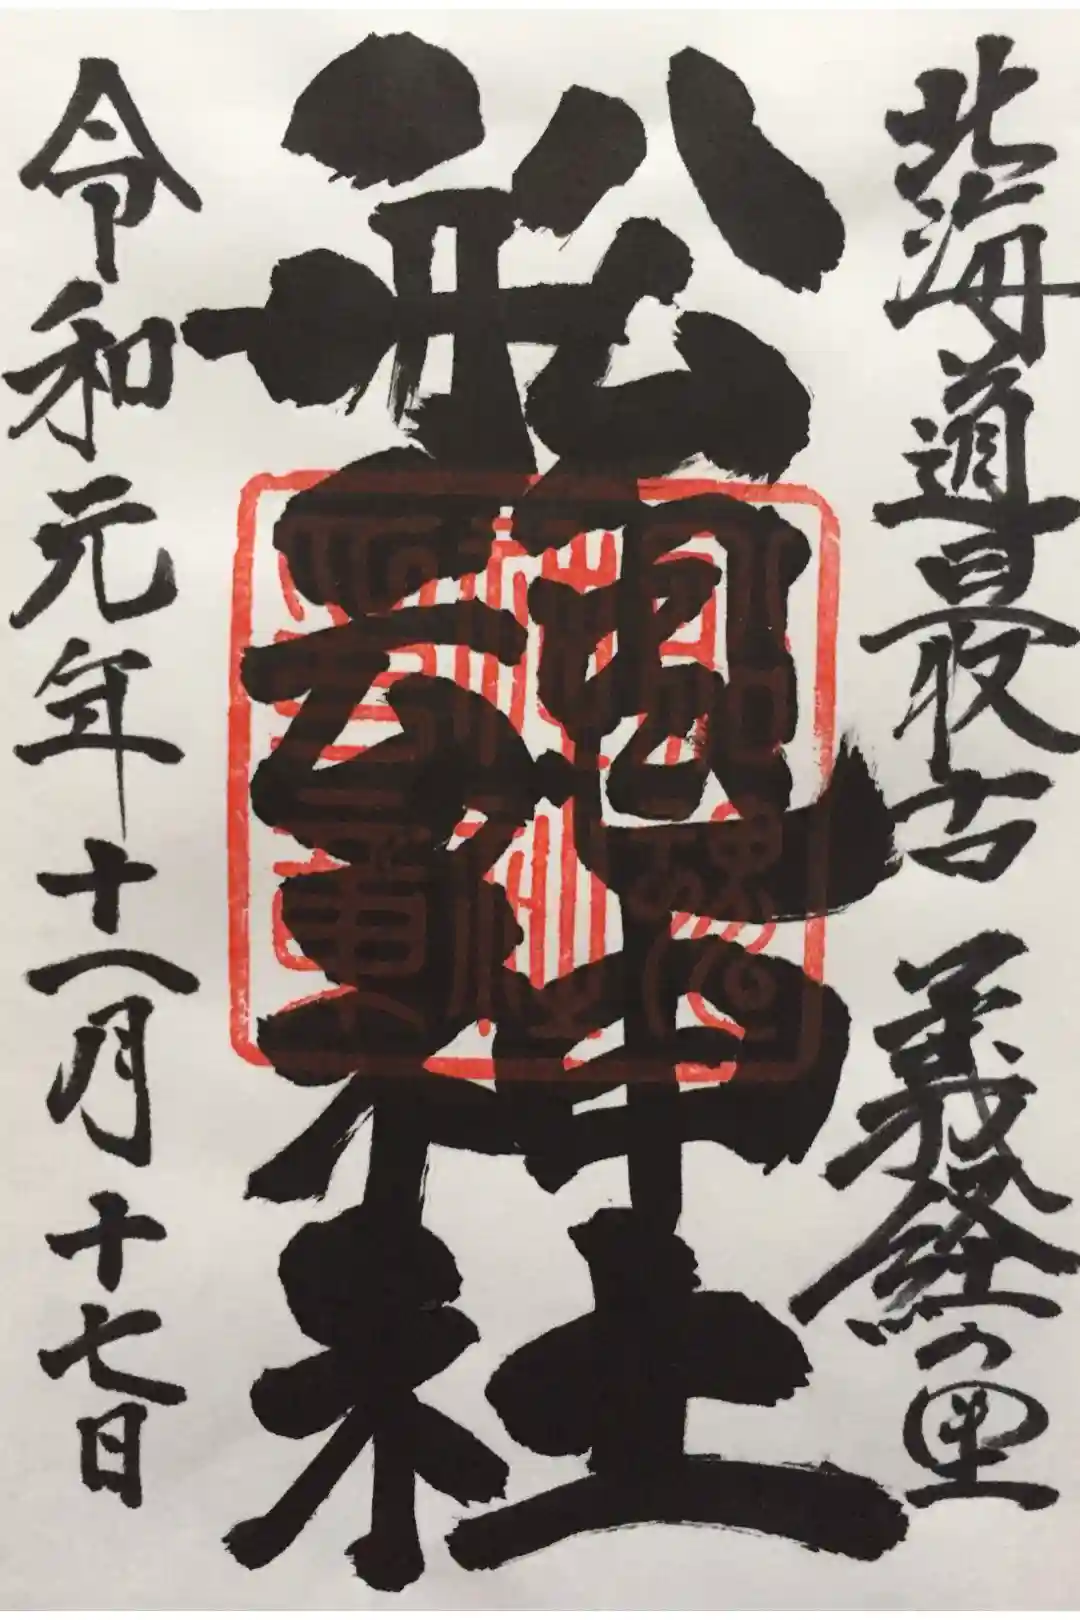 北海道最古 義経の里
舩魂神社
令和元年十一月十七日